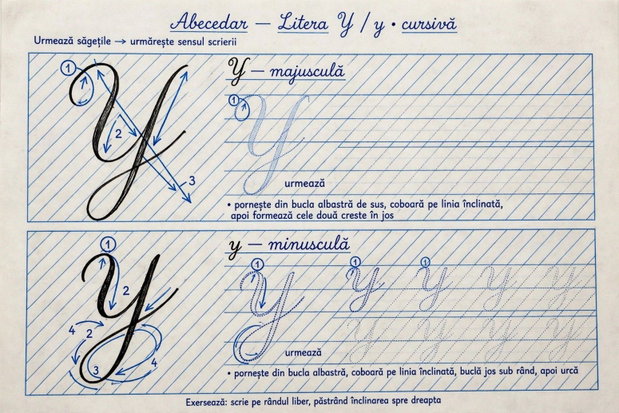 Abecedar — Litera Y / y • cursivă
Urmează săgețile → urmărește sensul scrierii
1
2
3
Y
Y — majusculă
1
Y
urmează
• pornește din bucla albastră de sus, coboară pe linia înclinată,
apoi formează cele două creste în jos
1
2
4 2
3 4
y
y — minusculă
1 1 1
y y y y y
y y y y y
urmează
• pornește din bucla albastră, coboară pe linia înclinată, buclă jos sub rând, apoi urcă
Exersează: scrie pe rândul liber, păstrând înclinarea spre dreapta